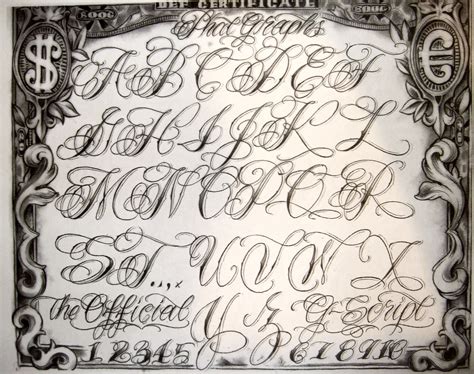 DEF CERTIFICATE
Phat Graphs
$ €
A B C D E F
G H I J K L
M N O P Q R
S T . , U V W X
the Official Y Z G-Script
1 2 3 4 5 6 7 8 9 10